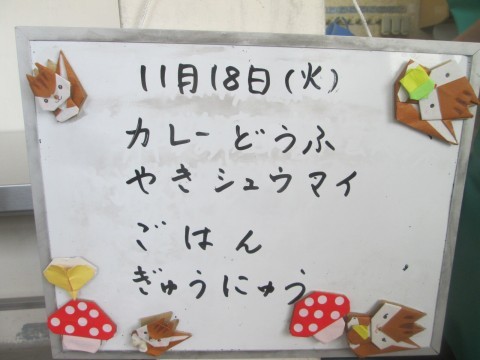 11月18日(火)
カレーどうふ
やきシュウマイ
ごはん
ぎゅうにゅう